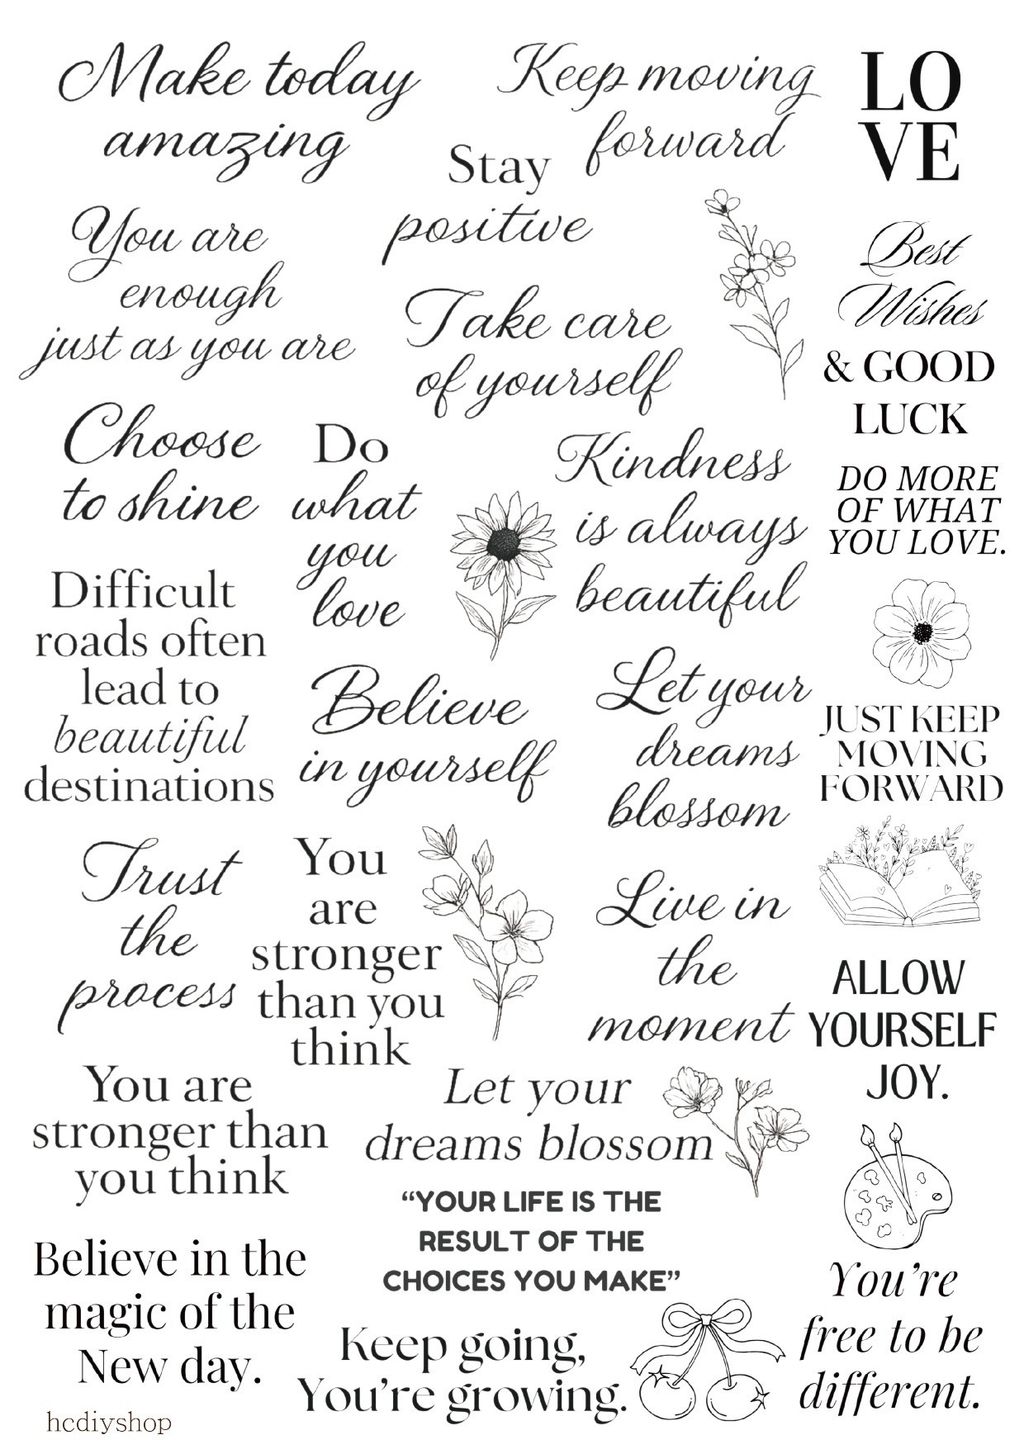 Make today
amazing
Keep moving
forward
LO
VE
Stay
positive
You are
enough
just as you are
Take care
of yourself
Best
Wishes
& GOOD
LUCK
Choose
to shine
Do
what
you
love
Kindness
is always
beautiful
DO MORE
OF WHAT
YOU LOVE.
Difficult
roads often
lead to
beautiful
destinations
Believe
in yourself
Let your
dreams
blossom
JUST KEEP
MOVING
FORWARD
Trust
the
process
You
are
stronger
than you
think
Live in
the
moment
ALLOW
YOURSELF
JOY.
You are
stronger than
you think
Let your
dreams blossom
“YOUR LIFE IS THE
RESULT OF THE
CHOICES YOU MAKE”
Believe in the
magic of the
New day.
Keep going,
You’re growing.
You’re
free to be
different.
hcdiyshop